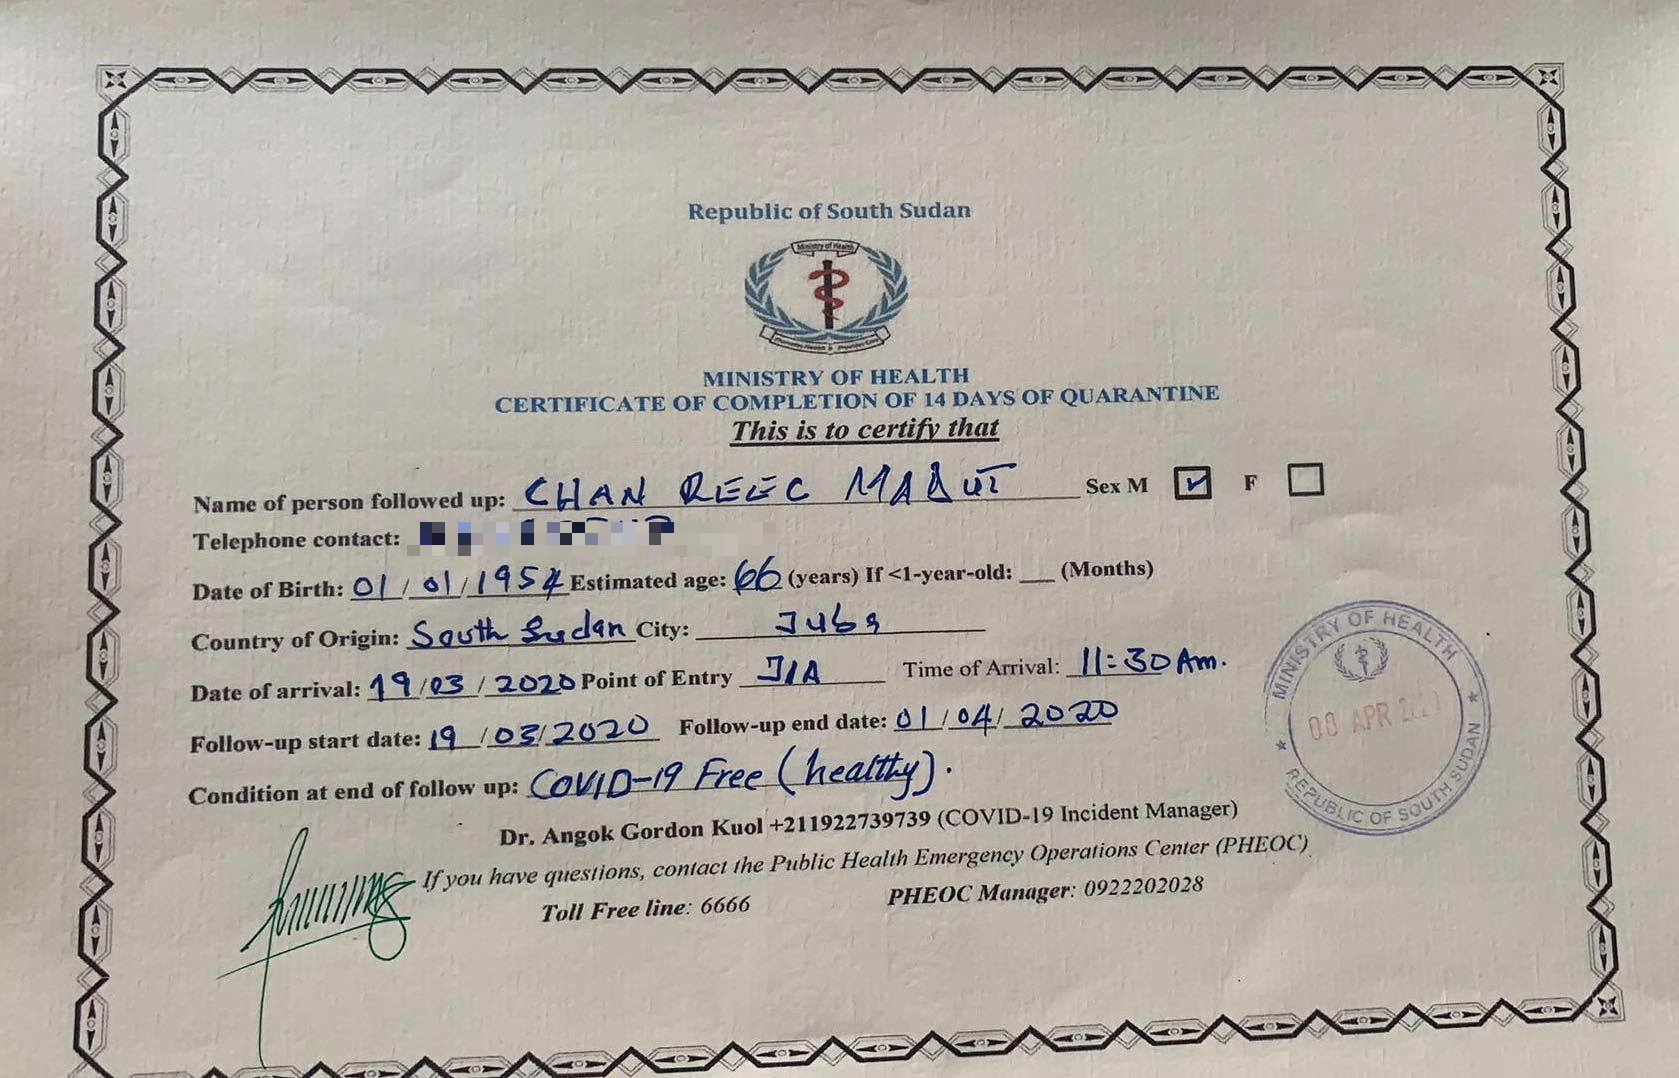 Republic of South Sudan
Ministry of Health
MINISTRY OF HEALTH
CERTIFICATE OF COMPLETION OF 14 DAYS OF QUARANTINE
This is to certify that
Name of person followed up: CHAN REEC MADUT Sex M F
Telephone contact:
Date of Birth: 01/01/1954 Estimated age: 66 (years) If <1-year-old: __ (Months)
Country of Origin: South Sudan City: Juba
Date of arrival: 19/03/2020 Point of Entry JIA Time of Arrival: 11:30 Am.
Follow-up start date: 19/03/2020 Follow-up end date: 01/04/2020
Condition at end of follow up: COVID-19 Free (healthy).
MINISTRY OF HEALTH
08 APR
REPUBLIC OF SOUTH SUDAN
Dr. Angok Gordon Kuol +211922739739 (COVID-19 Incident Manager)
If you have questions, contact the Public Health Emergency Operations Center (PHEOC)
Toll Free line: 6666 PHEOC Manager: 0922202028